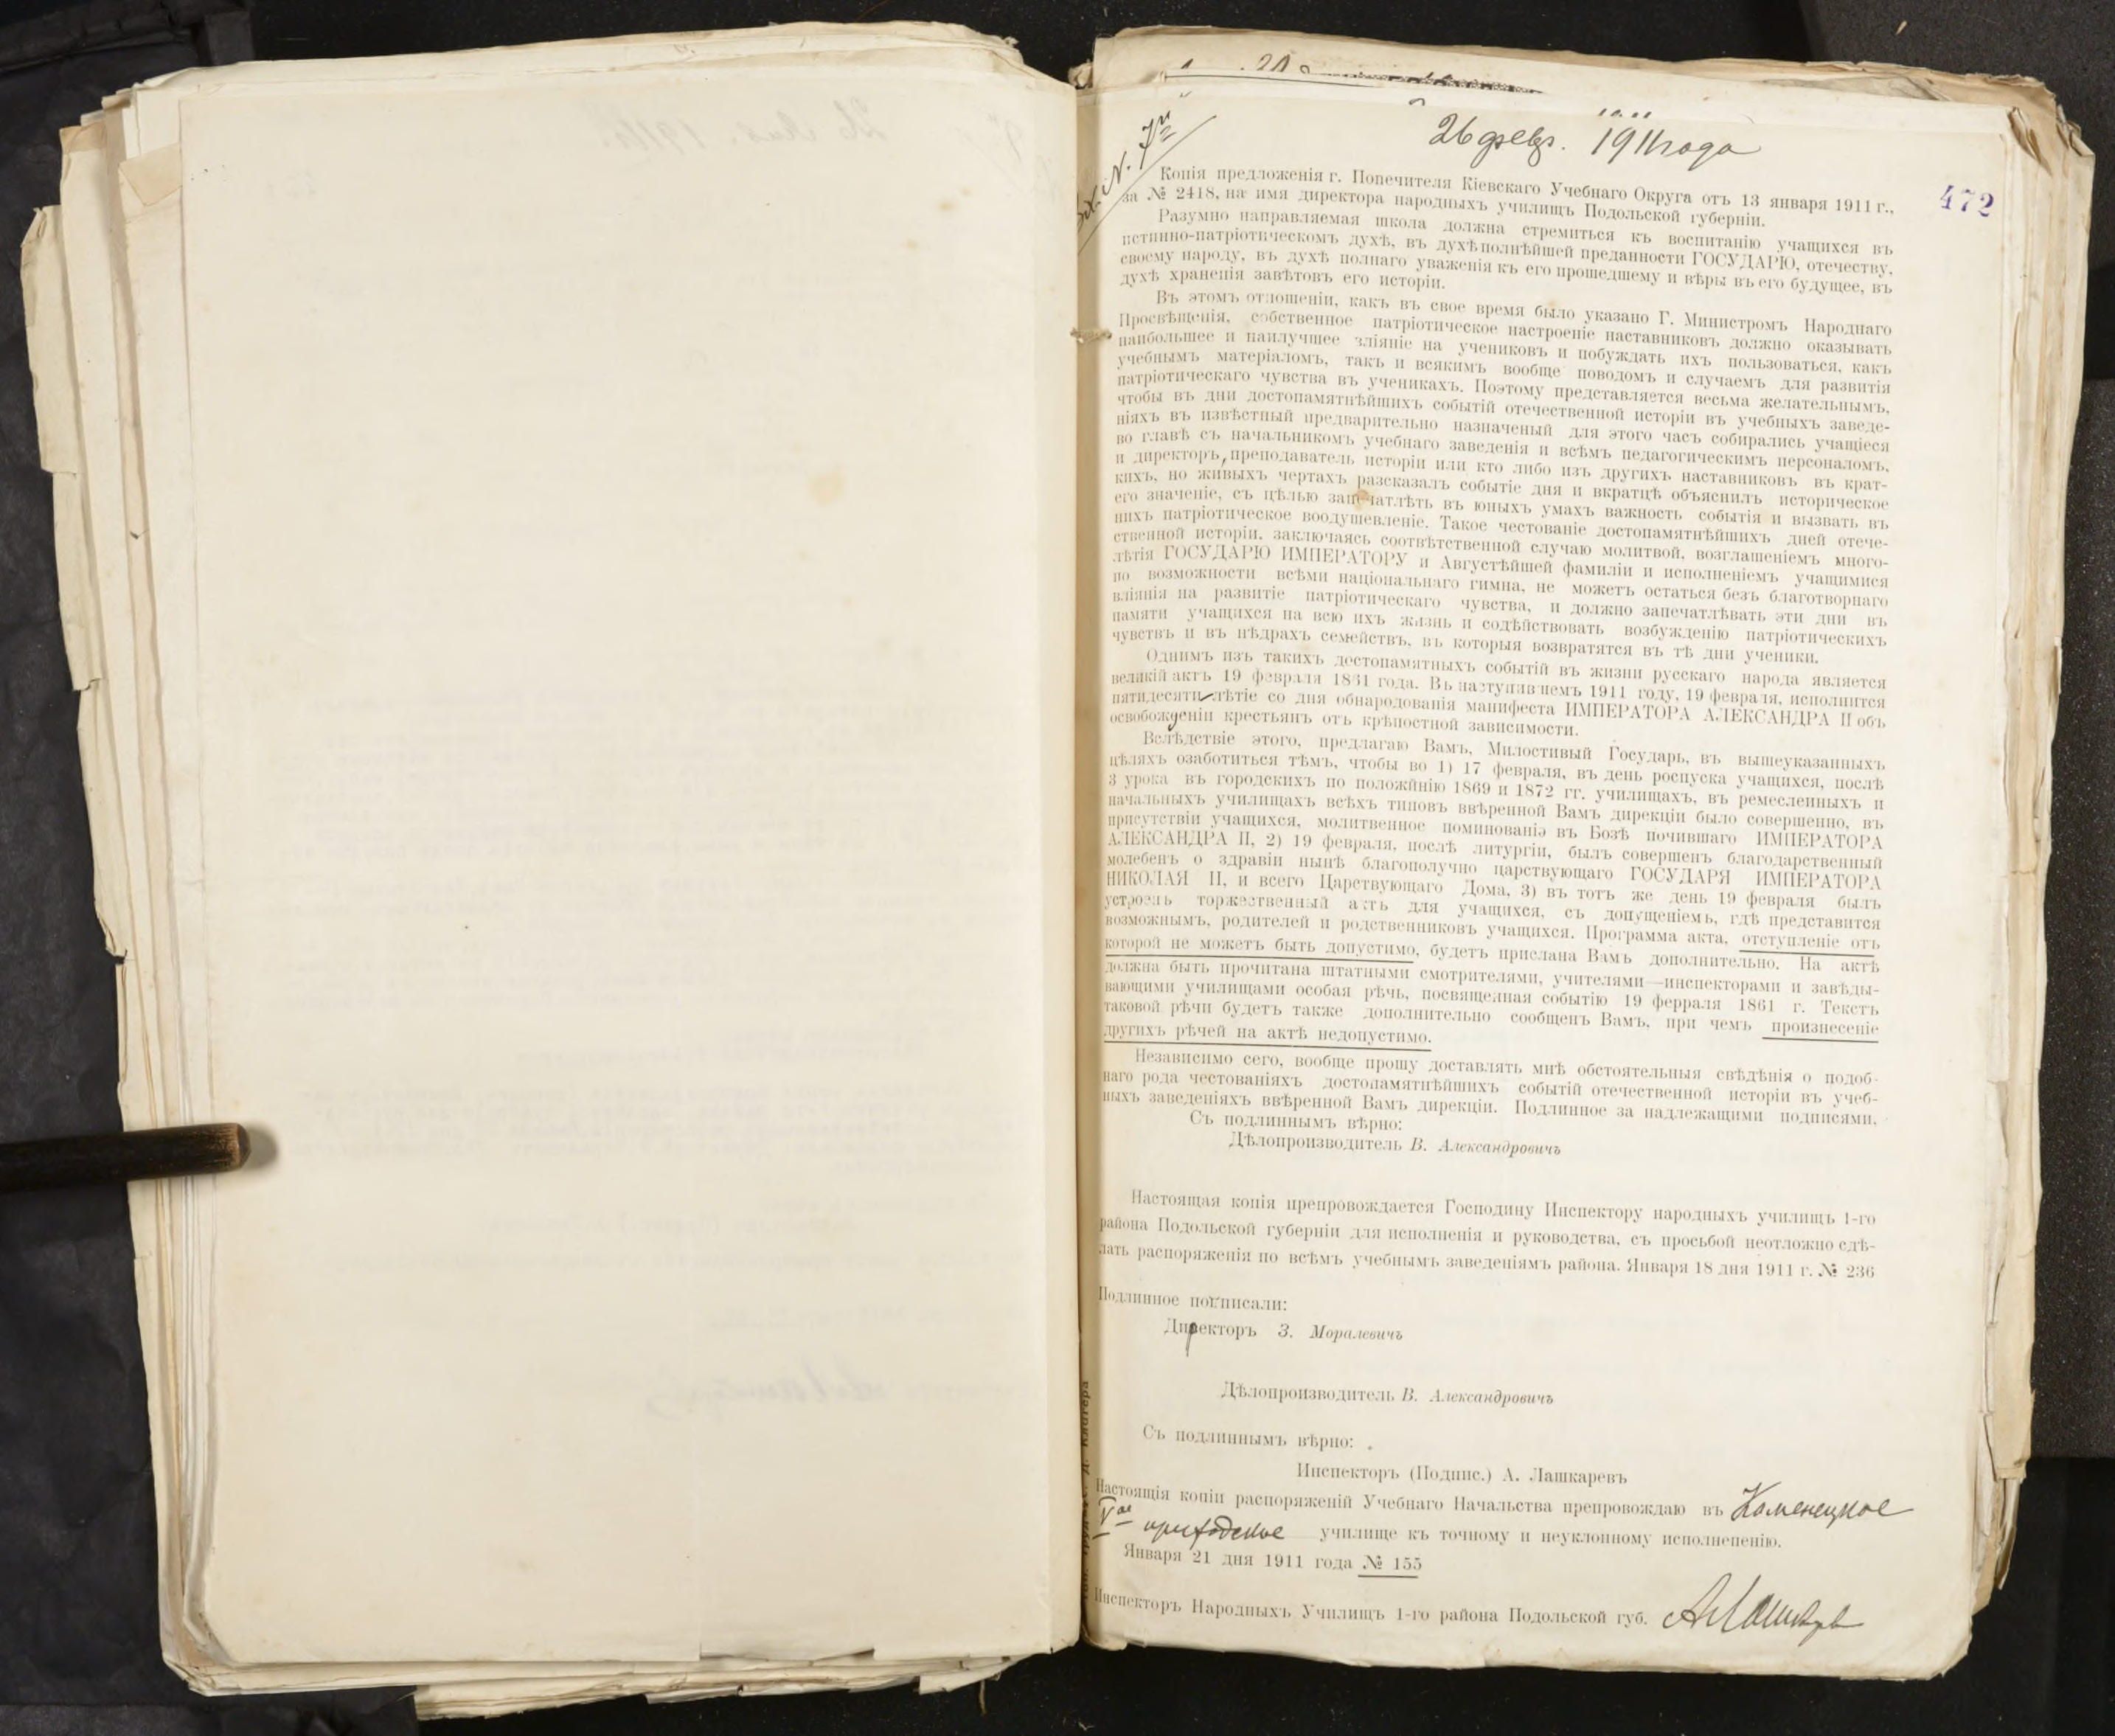 26 февр. 1911 года
Вх. N. 7
472
Копія предложенія г. Попечителя Кіевскаго Учебнаго Округа отъ 13 января 1911 г.,
за № 2418, на имя директора народныхъ училищъ Подольской губерніи.
Разумно направляемая школа должна стремиться къ воспитанію учащихся въ
истинно-патріотическомъ духѣ, въ духѣ полнѣйшей преданности ГОСУДАРЮ, отечеству,
своему народу, въ духѣ полнаго уваженія къ его прошедшему и вѣры въ его будущее, въ
духѣ храненія завѣтовъ его исторіи.
Въ этомъ отношеніи, какъ въ свое время было указано Г. Министромъ Народнаго
Просвѣщенія, собственное патріотическое настроеніе наставниковъ должно оказывать
наибольшее и наилучшее зліяніе на учениковъ и побуждать ихъ пользоваться, какъ
учебнымъ матеріаломъ, такъ и всякимъ вообще поводомъ и случаемъ для развитія
патріотическаго чувства въ ученикахъ. Поэтому представляется весьма желательнымъ,
чтобы въ дни достопамятнѣйшихъ событій отечественной исторіи въ учебныхъ заведе-
ніяхъ въ извѣстный предварительно назначеный для этого часъ собирались учащіеся
во главѣ съ начальникомъ учебнаго заведенія и всѣмъ педагогическимъ персоналомъ,
и директоръ, преподаватель исторіи или кто либо изъ другихъ наставниковъ въ крат-
кихъ, но живыхъ чертахъ разсказалъ событіе дня и вкратцѣ объяснилъ историческое
его значеніе, съ цѣлью запечатлѣть въ юныхъ умахъ важность событія и вызвать въ
нихъ патріотическое воодушевленіе. Такое честованіе достопамятнѣйшихъ дней отече-
ственной исторіи, заключаясь соотвѣтственной случаю молитвой, возглашеніемъ много-
лѣтія ГОСУДАРЮ ИМПЕРАТОРУ и Августѣйшей фамиліи и исполненіемъ учащимися
по возможности всѣми національнаго гимна, не можетъ остаться безъ благотворнаго
вліянія на развитіе патріотическаго чувства, и должно запечатлѣвать эти дни въ
памяти учащихся на всю ихъ жизнь и содѣйствовать возбужденію патріотическихъ
чувствъ и въ нѣдрахъ семействъ, въ которыя возвратятся въ тѣ дни ученики.
Однимъ изъ такихъ достопамятныхъ событій въ жизни русскаго народа является
великій актъ 19 февраля 1861 года. Въ наступившемъ 1911 году, 19 февраля, исполнится
пятидесяти лѣтіе со дня обнародованія манифеста ИМПЕРАТОРА АЛЕКСАНДРА II объ
освобожденіи крестьянъ отъ крѣпостной зависимости.
Вслѣдствіе этого, предлагаю Вамъ, Милостивый Государь, въ вышеуказанныхъ
цѣляхъ озаботиться тѣмъ, чтобы во 1) 17 февраля, въ день роспуска учащихся, послѣ
3 урока въ городскихъ по положйнію 1869 и 1872 гг. училищахъ, въ ремесленныхъ и
начальныхъ училищахъ всѣхъ типовъ ввѣренной Вамъ дирекціи было совершенно, въ
присутствіи учащихся, молитвенное поминованіэ въ Бозѣ почившаго ИМПЕРАТОРА
АЛЕКСАНДРА II, 2) 19 февраля, послѣ литургіи, былъ совершенъ благодарственный
молебенъ о здравіи нынѣ благополучно царствующаго ГОСУДАРЯ ИМПЕРАТОРА
НИКОЛАЯ II, и всего Царствующаго Дома, 3) въ тотъ же день 19 февраля былъ
устроенъ торжественный актъ для учащихся, съ допущеніемъ, гдѣ представится
возможнымъ, родителей и родственниковъ учащихся. Программа акта, отступленіе отъ
которой не можетъ быть допустимо, будетъ прислана Вамъ дополнительно. На актѣ
должна быть прочитана штатными смотрителями, учителями—инспекторами и завѣды-
вающими училищами особая рѣчь, посвященная событію 19 ферраля 1861 г. Текстъ
таковой рѣчи будетъ также дополнительно сообщенъ Вамъ, при чемъ произнесеніе
другихъ рѣчей на актѣ недопустимо.
Независимо сего, вообще прошу доставлять мнѣ обстоятельныя свѣдѣнія о подоб-
наго рода честованіяхъ достопамятнѣйшихъ событій отечественной исторіи въ учеб-
ныхъ заведеніяхъ ввѣренной Вамъ дирекціи. Подлинное за надлежащими подписями.
Съ подлиннымъ вѣрно:
Дѣлопроизводитель В. Александровичъ
Настоящая копія препровождается Господину Инспектору народныхъ училищъ 1-го
района Подольской губерніи для исполненія и руководства, съ просьбой неотложно сдѣ-
лать распоряженія по всѣмъ учебнымъ заведеніямъ района. Января 18 дня 1911 г. № 236
Подлинное подписали:
Директоръ З. Моралевичъ
Дѣлопроизводитель В. Александровичъ
Съ подлиннымъ вѣрно:
Инспекторъ (Подпис.) А. Лашкаревъ
Настоящія копіи распоряженій Учебнаго Начальства препровождаю въ Каменецкое
V ое приходское училище къ точному и неуклонному исполнепенію.
Января 21 дня 1911 года № 155
Инспекторъ Народныхъ Училищъ 1-го района Подольской губ. А Лашкарев